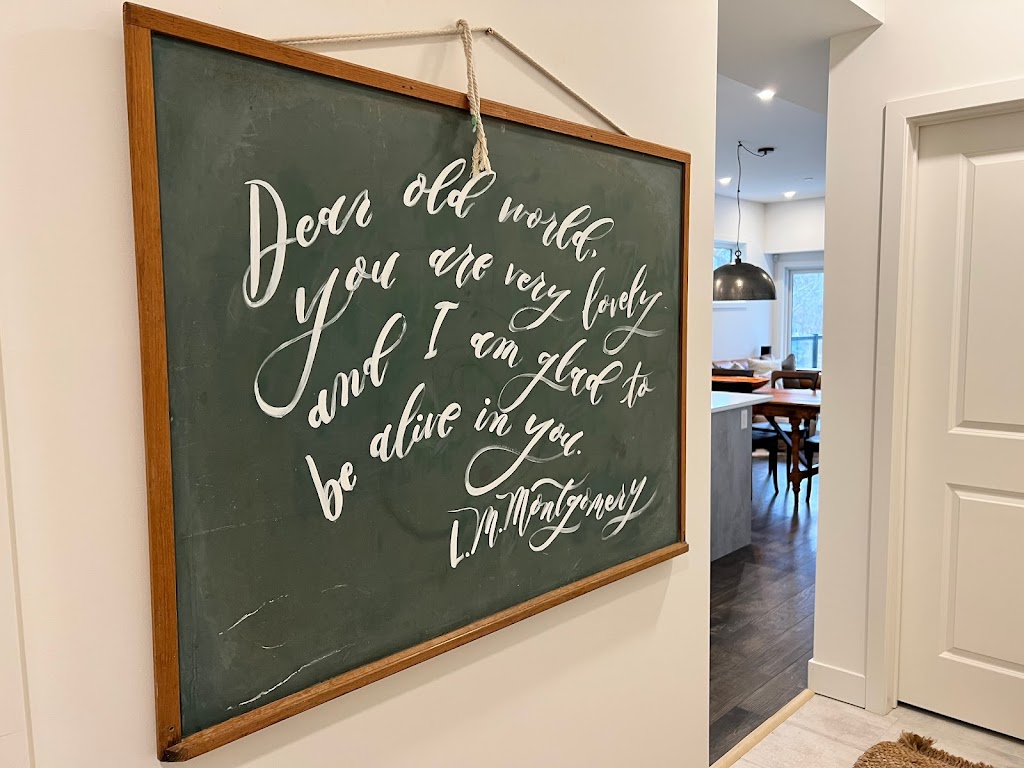 Dear old world,
You are very lovely
and I am glad to
be alive in you.
L.M. Montgomery